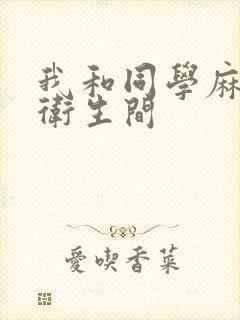 我和同學麻
衛生間
愛喫香菜